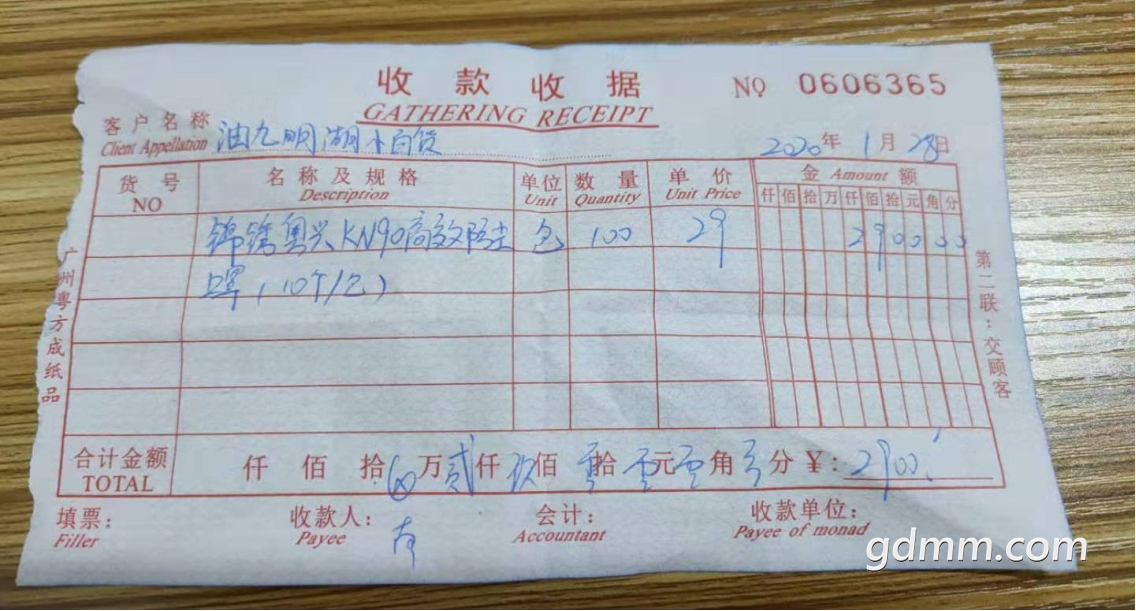 收款收据
GATHERING RECEIPT
NO 0606365
客户名称 油九明湖小百货
Client Appellation
2020年1月28日
货号 名称及规格 单位 数量 单价 金 Amount 额
NO Description Unit Quantity Unit Price 仟佰拾万仟佰拾元角分
锦绣奥兴KN90高效防尘 包 100 29 290000
口罩(10个/包)
广州粤方成纸品
第二联:交顾客
合计金额 仟 佰 拾 万贰仟玖佰零拾零元零角零分¥:2900
TOTAL
填票: 收款人: 会计: 收款单位:
Filler Payee Accountant Payee of monad
gdmm.com